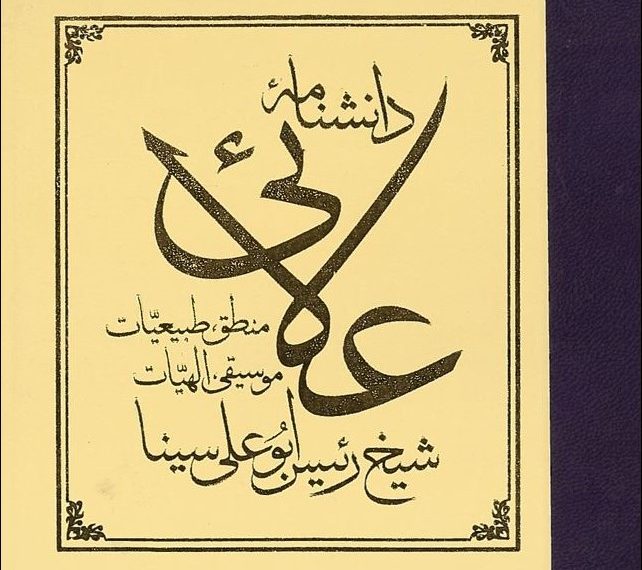 دانشنامهٔ
علائی
منطق، طبیعیّات
موسیقی، الهیّات
شیخ رئیس ابوعلی سینا